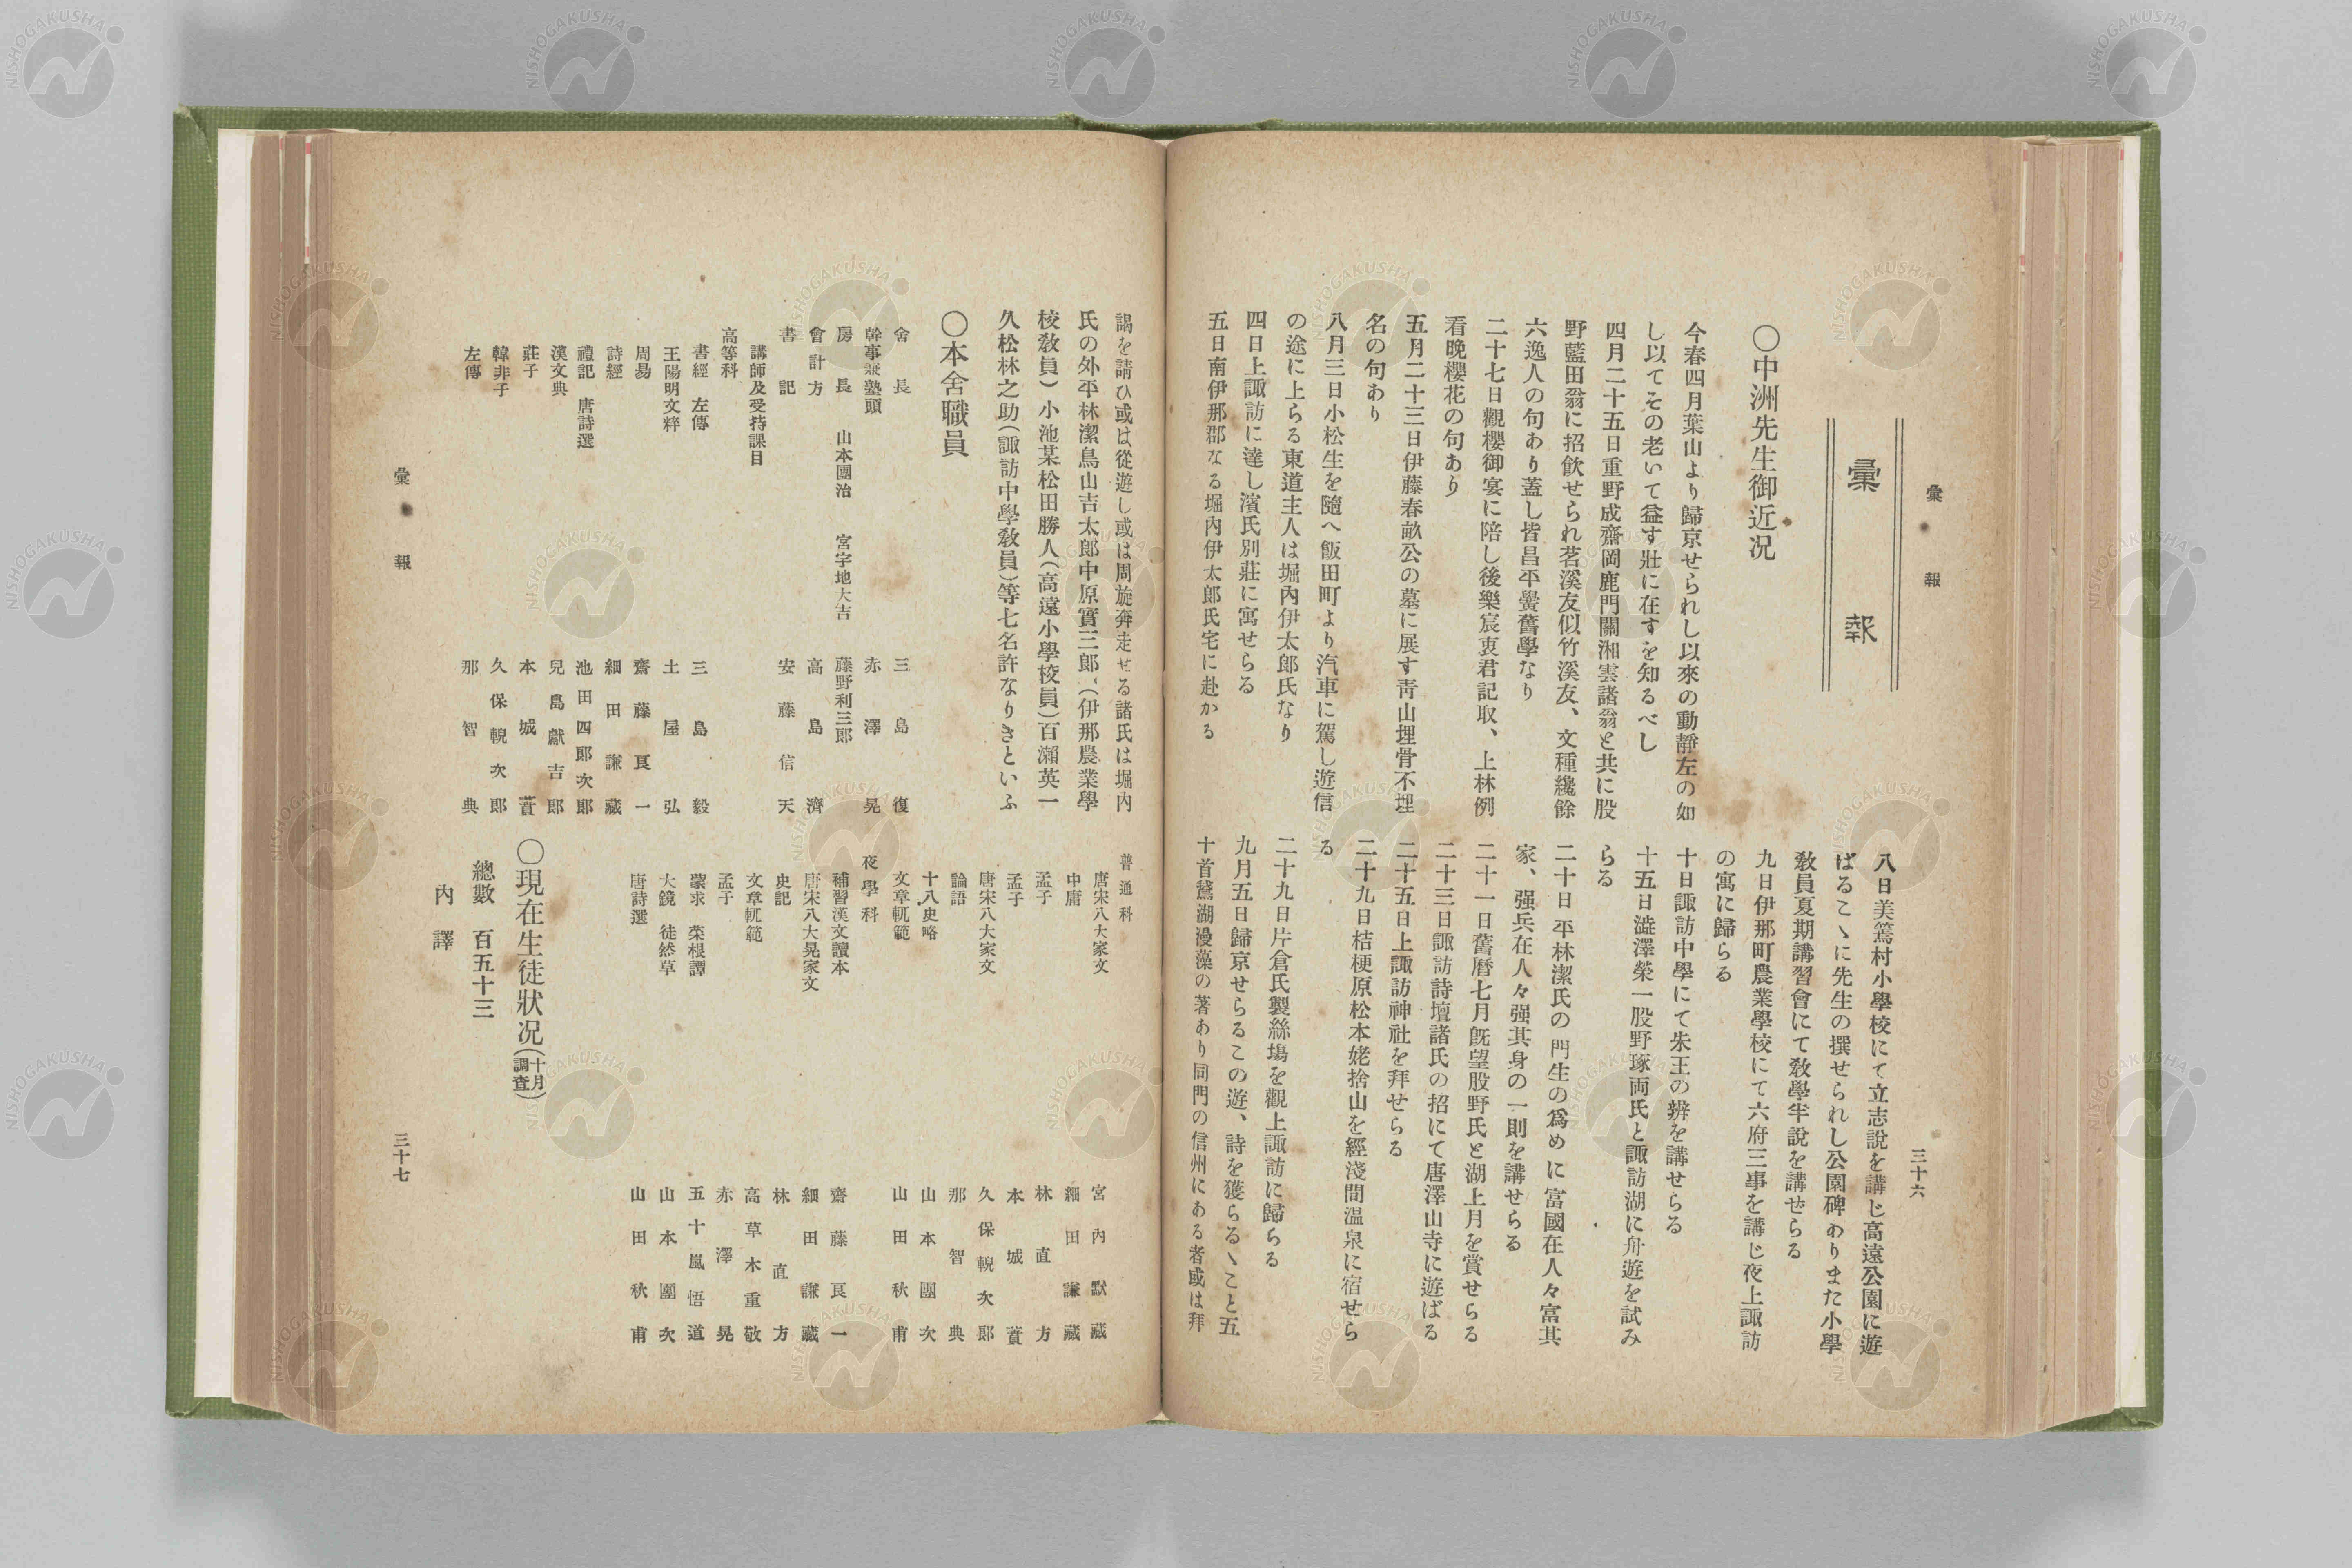 彙報
三十六
彙報
〇中洲先生御近況
今春四月葉山より歸京せられし以來の動靜左の如
し以てその老いて益す壯に在すを知るべし
四月二十五日重野成齋岡鹿門關湘雲諸翁と共に股
野藍田翁に招飮せられ茗溪友似竹溪友、文種纔餘
六逸人の句あり蓋し皆昌平黌舊學なり
二十七日觀櫻御宴に陪し後樂宸衷君記取、上林例
看晩櫻花の句あり
五月二十三日伊藤春畝公の墓に展す靑山埋骨不埋
名の句あり
八月三日小松生を隨へ飯田町より汽車に駕し遊信
の途に上らる東道主人は堀內伊太郎氏なり
四日上諏訪に達し濱氏別莊に寓せらる
五日南伊那郡なる堀內伊太郎氏宅に赴かる
八日美篶村小學校にて立志說を講じ高遠公園に遊
ばるこゝに先生の撰せられし公園碑ありまた小學
敎員夏期講習會にて敎學半說を講せらる
九日伊那町農業學校にて六府三事を講じ夜上諏訪
の寓に歸らる
十日諏訪中學にて朱王の辨を講せらる
十五日澁澤榮一股野琢両氏と諏訪湖に舟遊を試み
らる
二十日平林潔氏の門生の爲めに富國在人々富其
家、强兵在人々强其身の一則を講せらる
二十一日舊曆七月旣望股野氏と湖上月を賞せらる
二十三日諏訪詩壇諸氏の招にて唐澤山寺に遊ばる
二十五日上諏訪神社を拜せらる
二十九日桔梗原松本姥捨山を經淺間温泉に宿せら
る
二十九日片倉氏製絲塲を觀上諏訪に歸らる
九月五日歸京せらるこの遊、詩を獲らるゝこと五
十首鵞湖漫藻の著あり同門の信州にある者或は拜
謁を請ひ或は從遊し或は周旋奔走せる諸氏は堀內
氏の外平林潔鳥山吉太郎中原實三郎、(伊那農業學
校敎員)小池某松田勝人(高遠小學校員)百瀨英一
久松林之助(諏訪中學敎員)等七名許なりきといふ
〇本舍職員
舍長 三島復
幹事兼塾頭 赤澤晃
房長 山本團治 宮字地大吉 藤野利三郎
會計方 高島濟
書記 安藤信天
講師及受持課目
高等科
書經 左傳 三島毅
王陽明文粹 土屋弘
周易 齋藤良一
詩經 細田謙藏
禮記 唐詩選 池田四郎次郎
漢文典 兒島獻吉郎
莊子 本城蕡
韓非子 久保輗次郎
左傳 那智典
普通科
唐宋八大家文 宮內默藏
中庸 細田謙藏
孟子 林直方
孟子 本城蕡
唐宋八大家文 久保輗次郎
論語 那智典
十八史略 山本團次
文章軌範 山田秋甫
夜學科
補習漢文讀本 齋藤良一
唐宋八大晃家文 細田謙藏
史記 林直方
文章軌範 高草木重敬
孟子 赤澤晃
蒙求 菜根譚 五十嵐悟道
大鏡 徒然草 山本團次
唐詩選 山田秋甫
〇現在生徒狀况(十月調查)
總數 百五十三
內譯
彙報
三十七